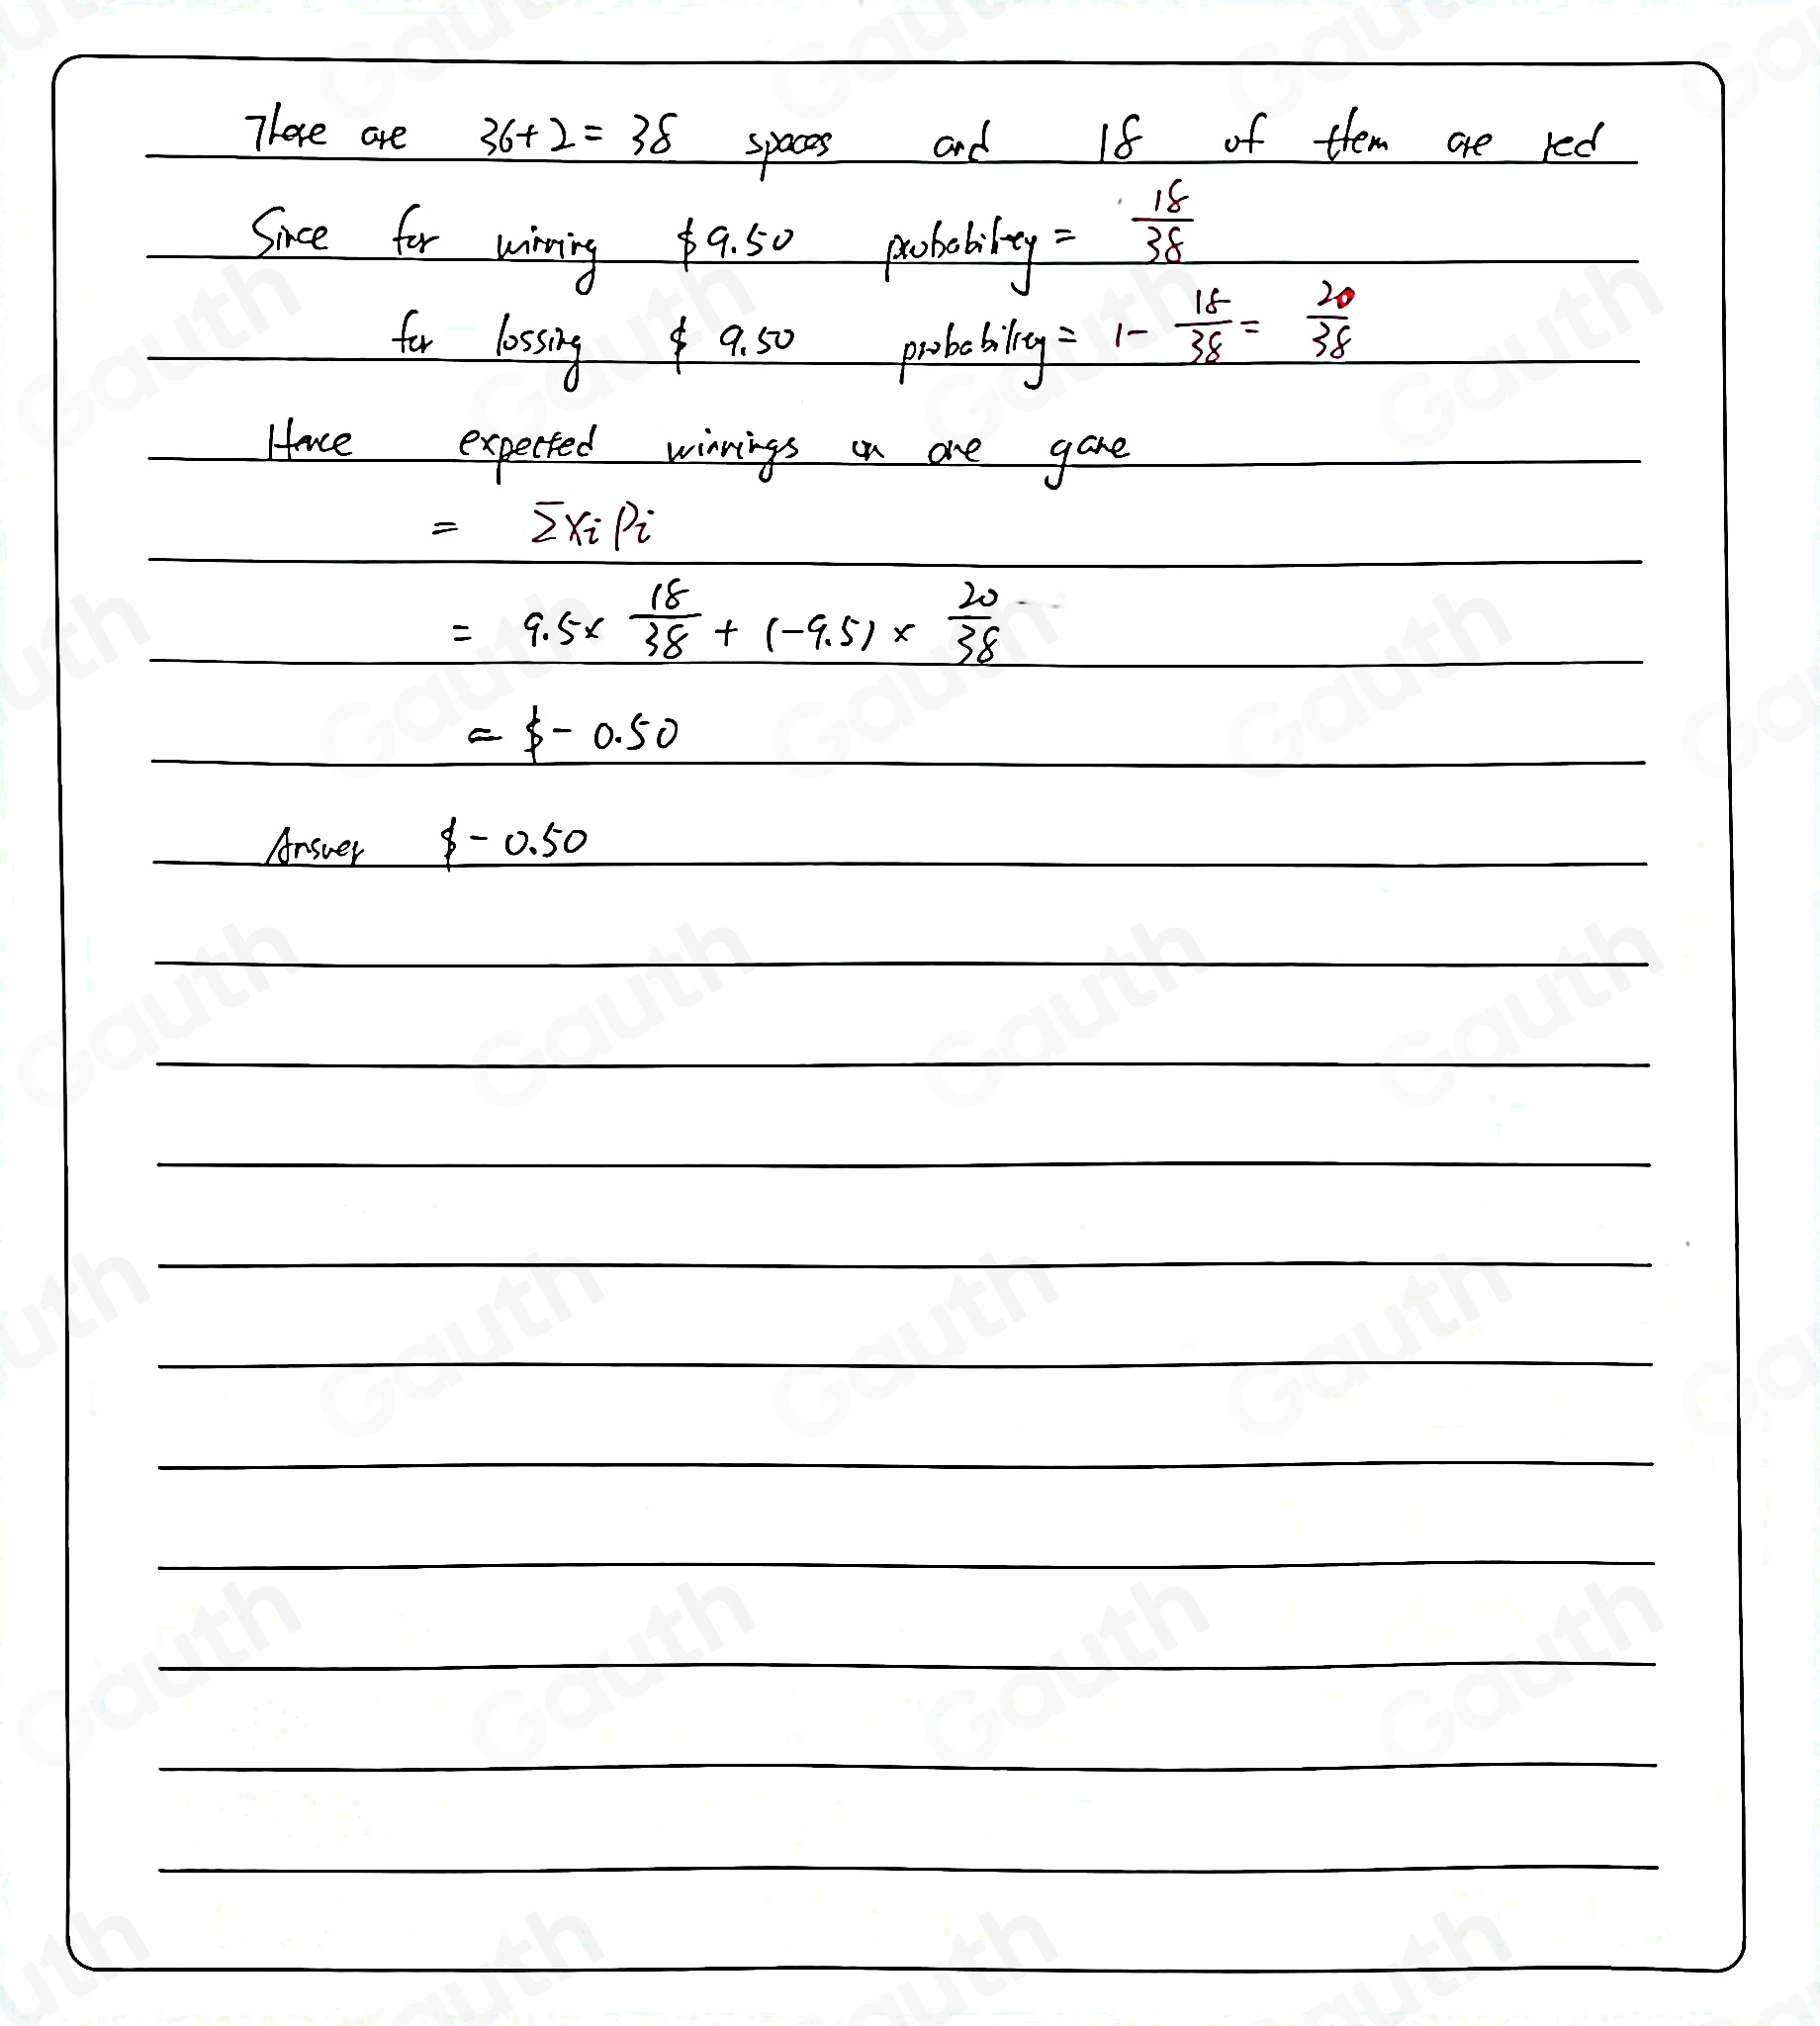 There are 36+2=38 spaces and 18 of them are red
Since for winning $9.50 probability = 18/38
for lossing $9.50 probability = 1 - 18/38 = 20/38
Hence expected winnings on one game
= ΣXiPi
= 9.5 × 18/38 + (-9.5) × 20/38
= $-0.50
Answer $-0.50
Gauth